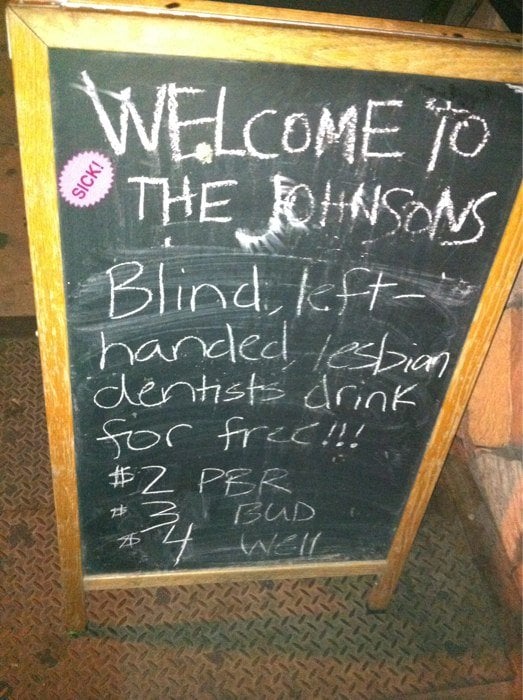 WELCOME TO
SICK!
THE JOHNSONS
Blind, left-
handed, lesbian
dentists drink
for free!!!
$2 PBR
$3 BUD
$4 Well